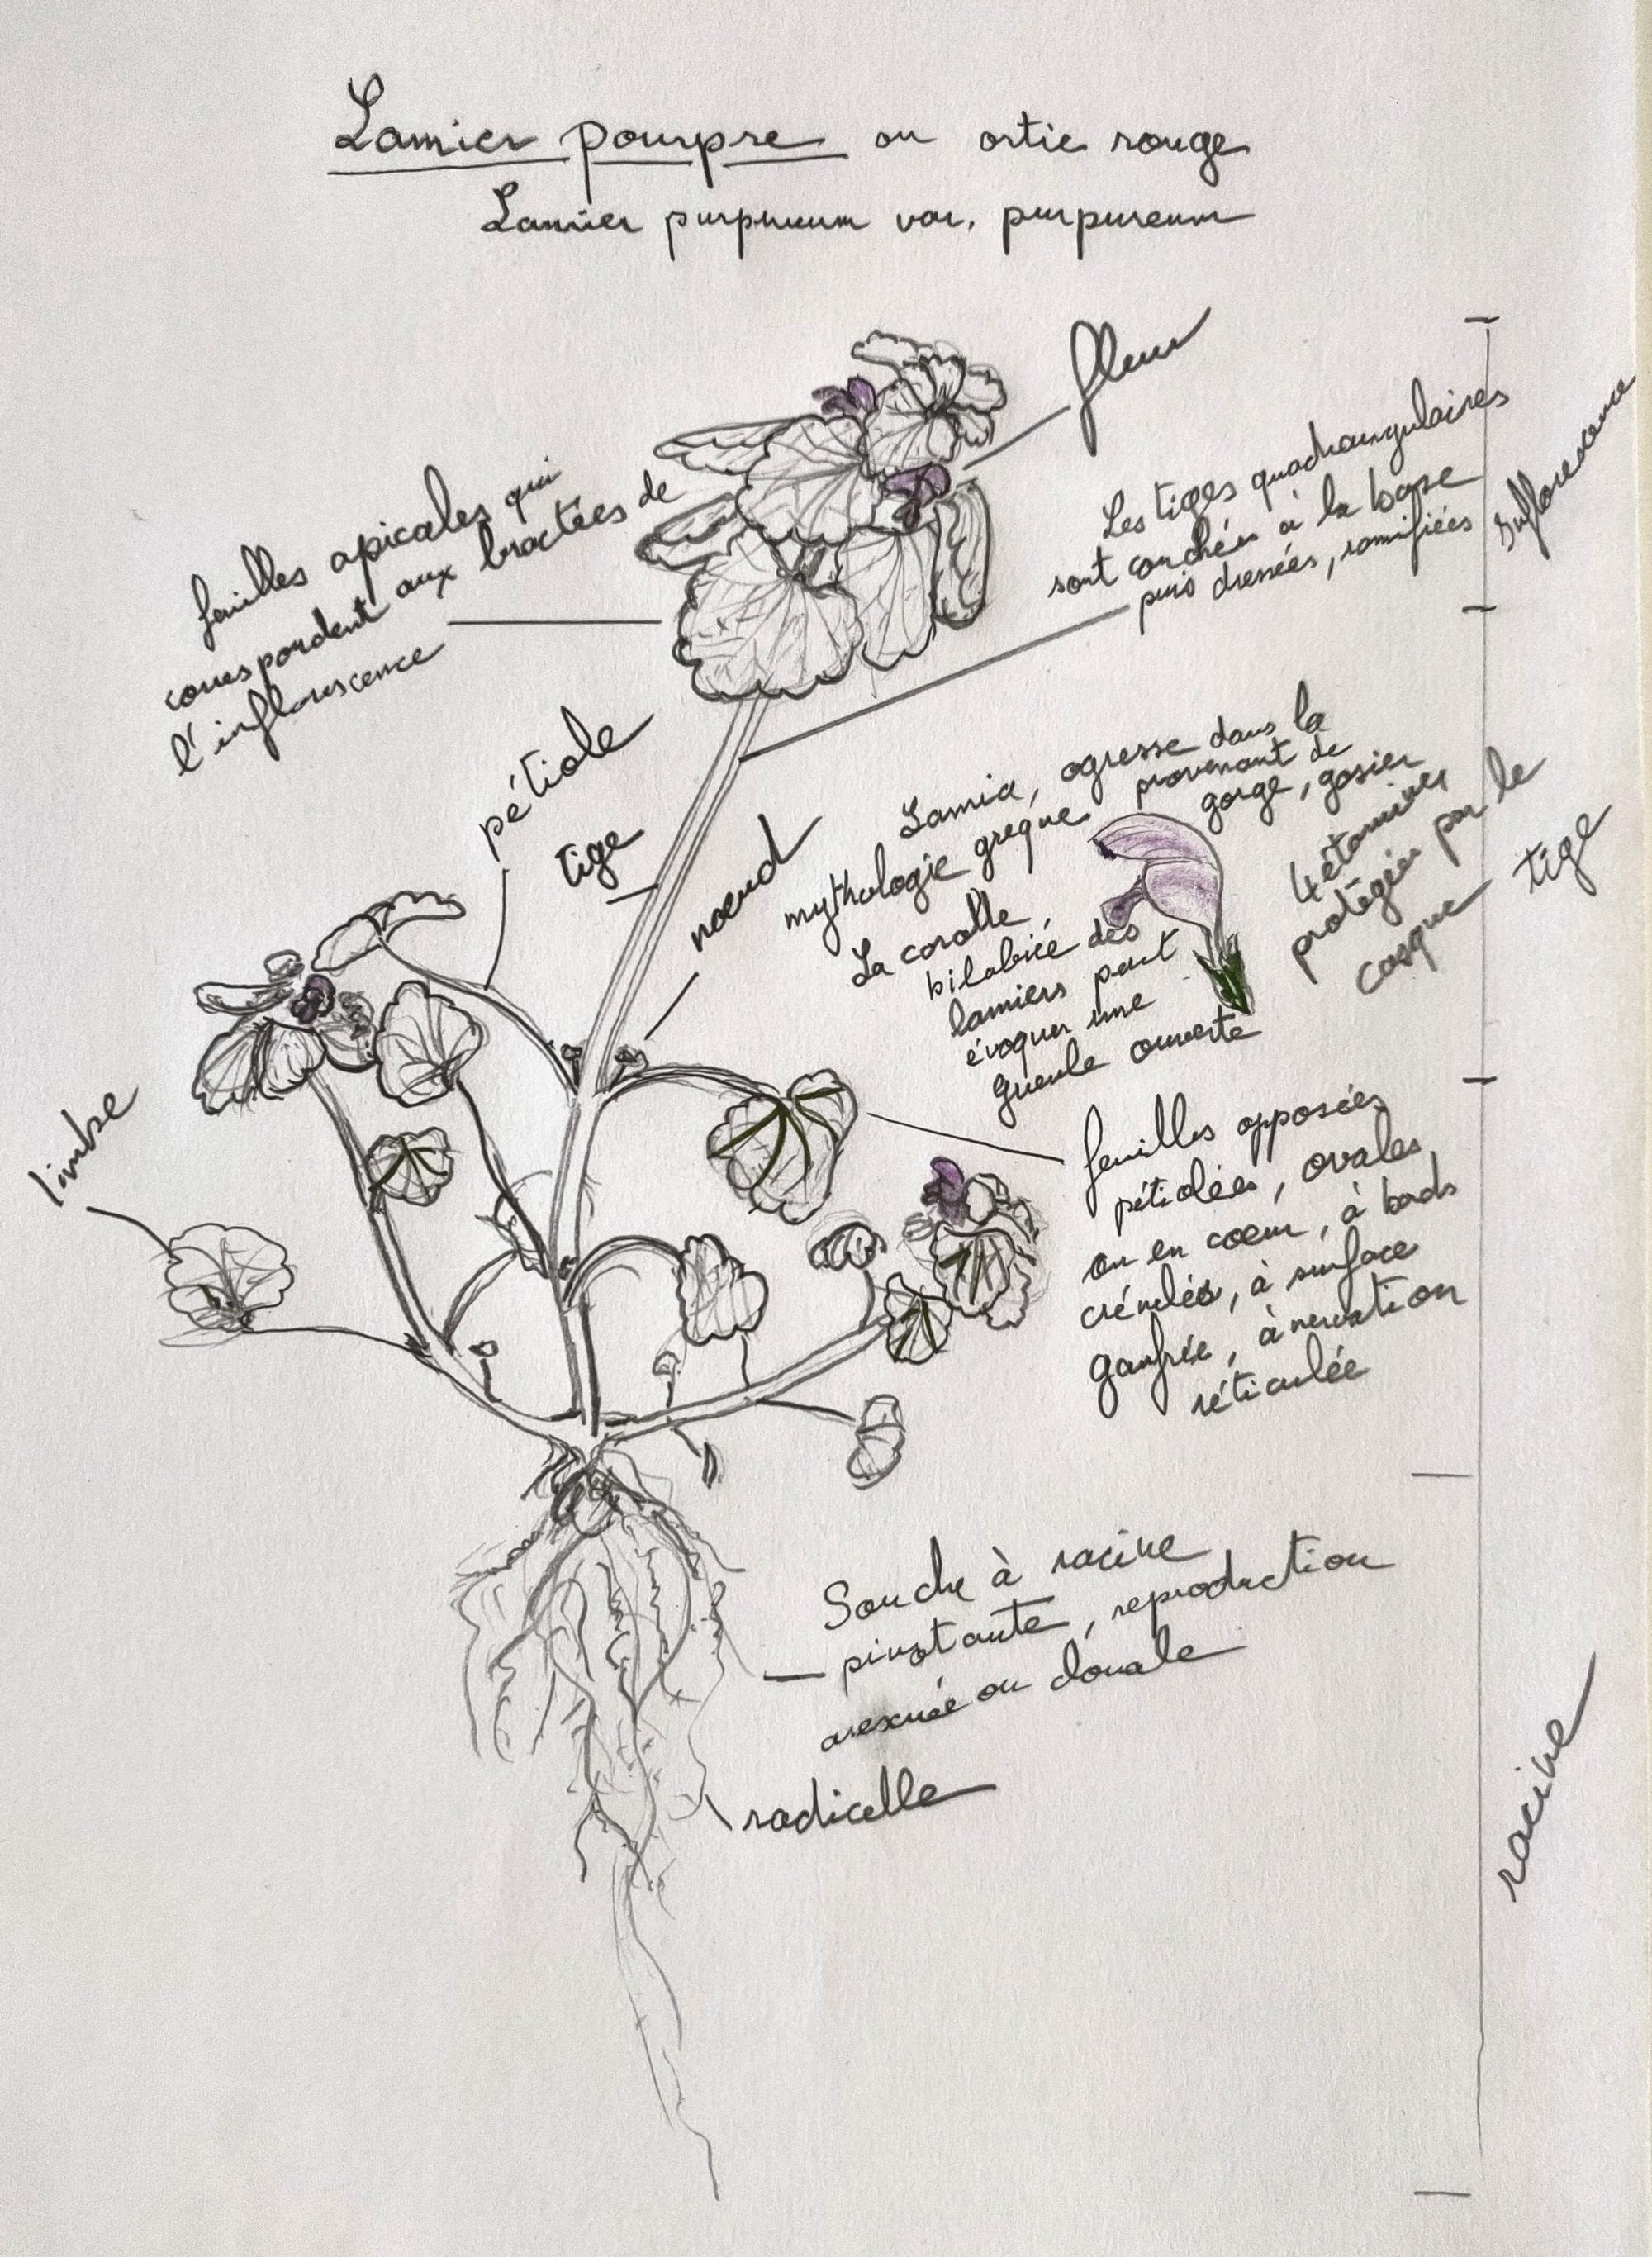 Lamier pourpre ou ortie rouge
Lamier purpureum var. purpureum
fleur
Les tiges quadrangulaires
sont couchées à la base
puis dressées, ramifiées
Inflorescence
feuilles apicales qui
correspondent aux bractées de
l'inflorescence
pétiole
tige
noeud
Lamia, ogresse dans la
mythologie greque provenant de
gorge, gosier
La corolle
bilabiée des
lamiers peut
évoquer une
gueule ouverte
4 étamines
protégées par le
casque
tige
limbe
feuilles opposées
pétiolées, ovales
ou en coeur, à bords
crénelés, à surface
gaufrée, à nervation
réticulée
Souche à racine
pivotante, reproduction
asexuée ou clonale
radicelle
racine